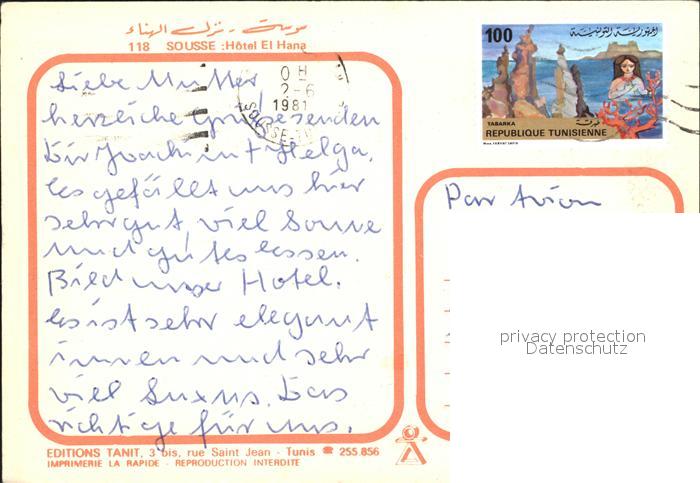 سوسة - نزل الهناء
118 SOUSSE :Hôtel El Hana
0 H
2-6
1981
SOUSSE
100
الجمهورية التونسية
TABARKA
طبرقة
REPUBLIQUE TUNISIENNE
Liebe Mutter
herzliche Grüße senden
Dir Joachim + Helga.
Es gefällt uns hier
sehr gut, viel Sonne
und gutes Essen.
Bild unser Hotel.
Es ist sehr elegant
innen und sehr
viel Luxus. Das
richtige für uns.
Par Avion
privacy protection
Datenschutz
EDITIONS TANIT, 3 bis, rue Saint Jean - Tunis ☎ 255.856
IMPRIMERIE LA RAPIDE - REPRODUCTION INTERDITE